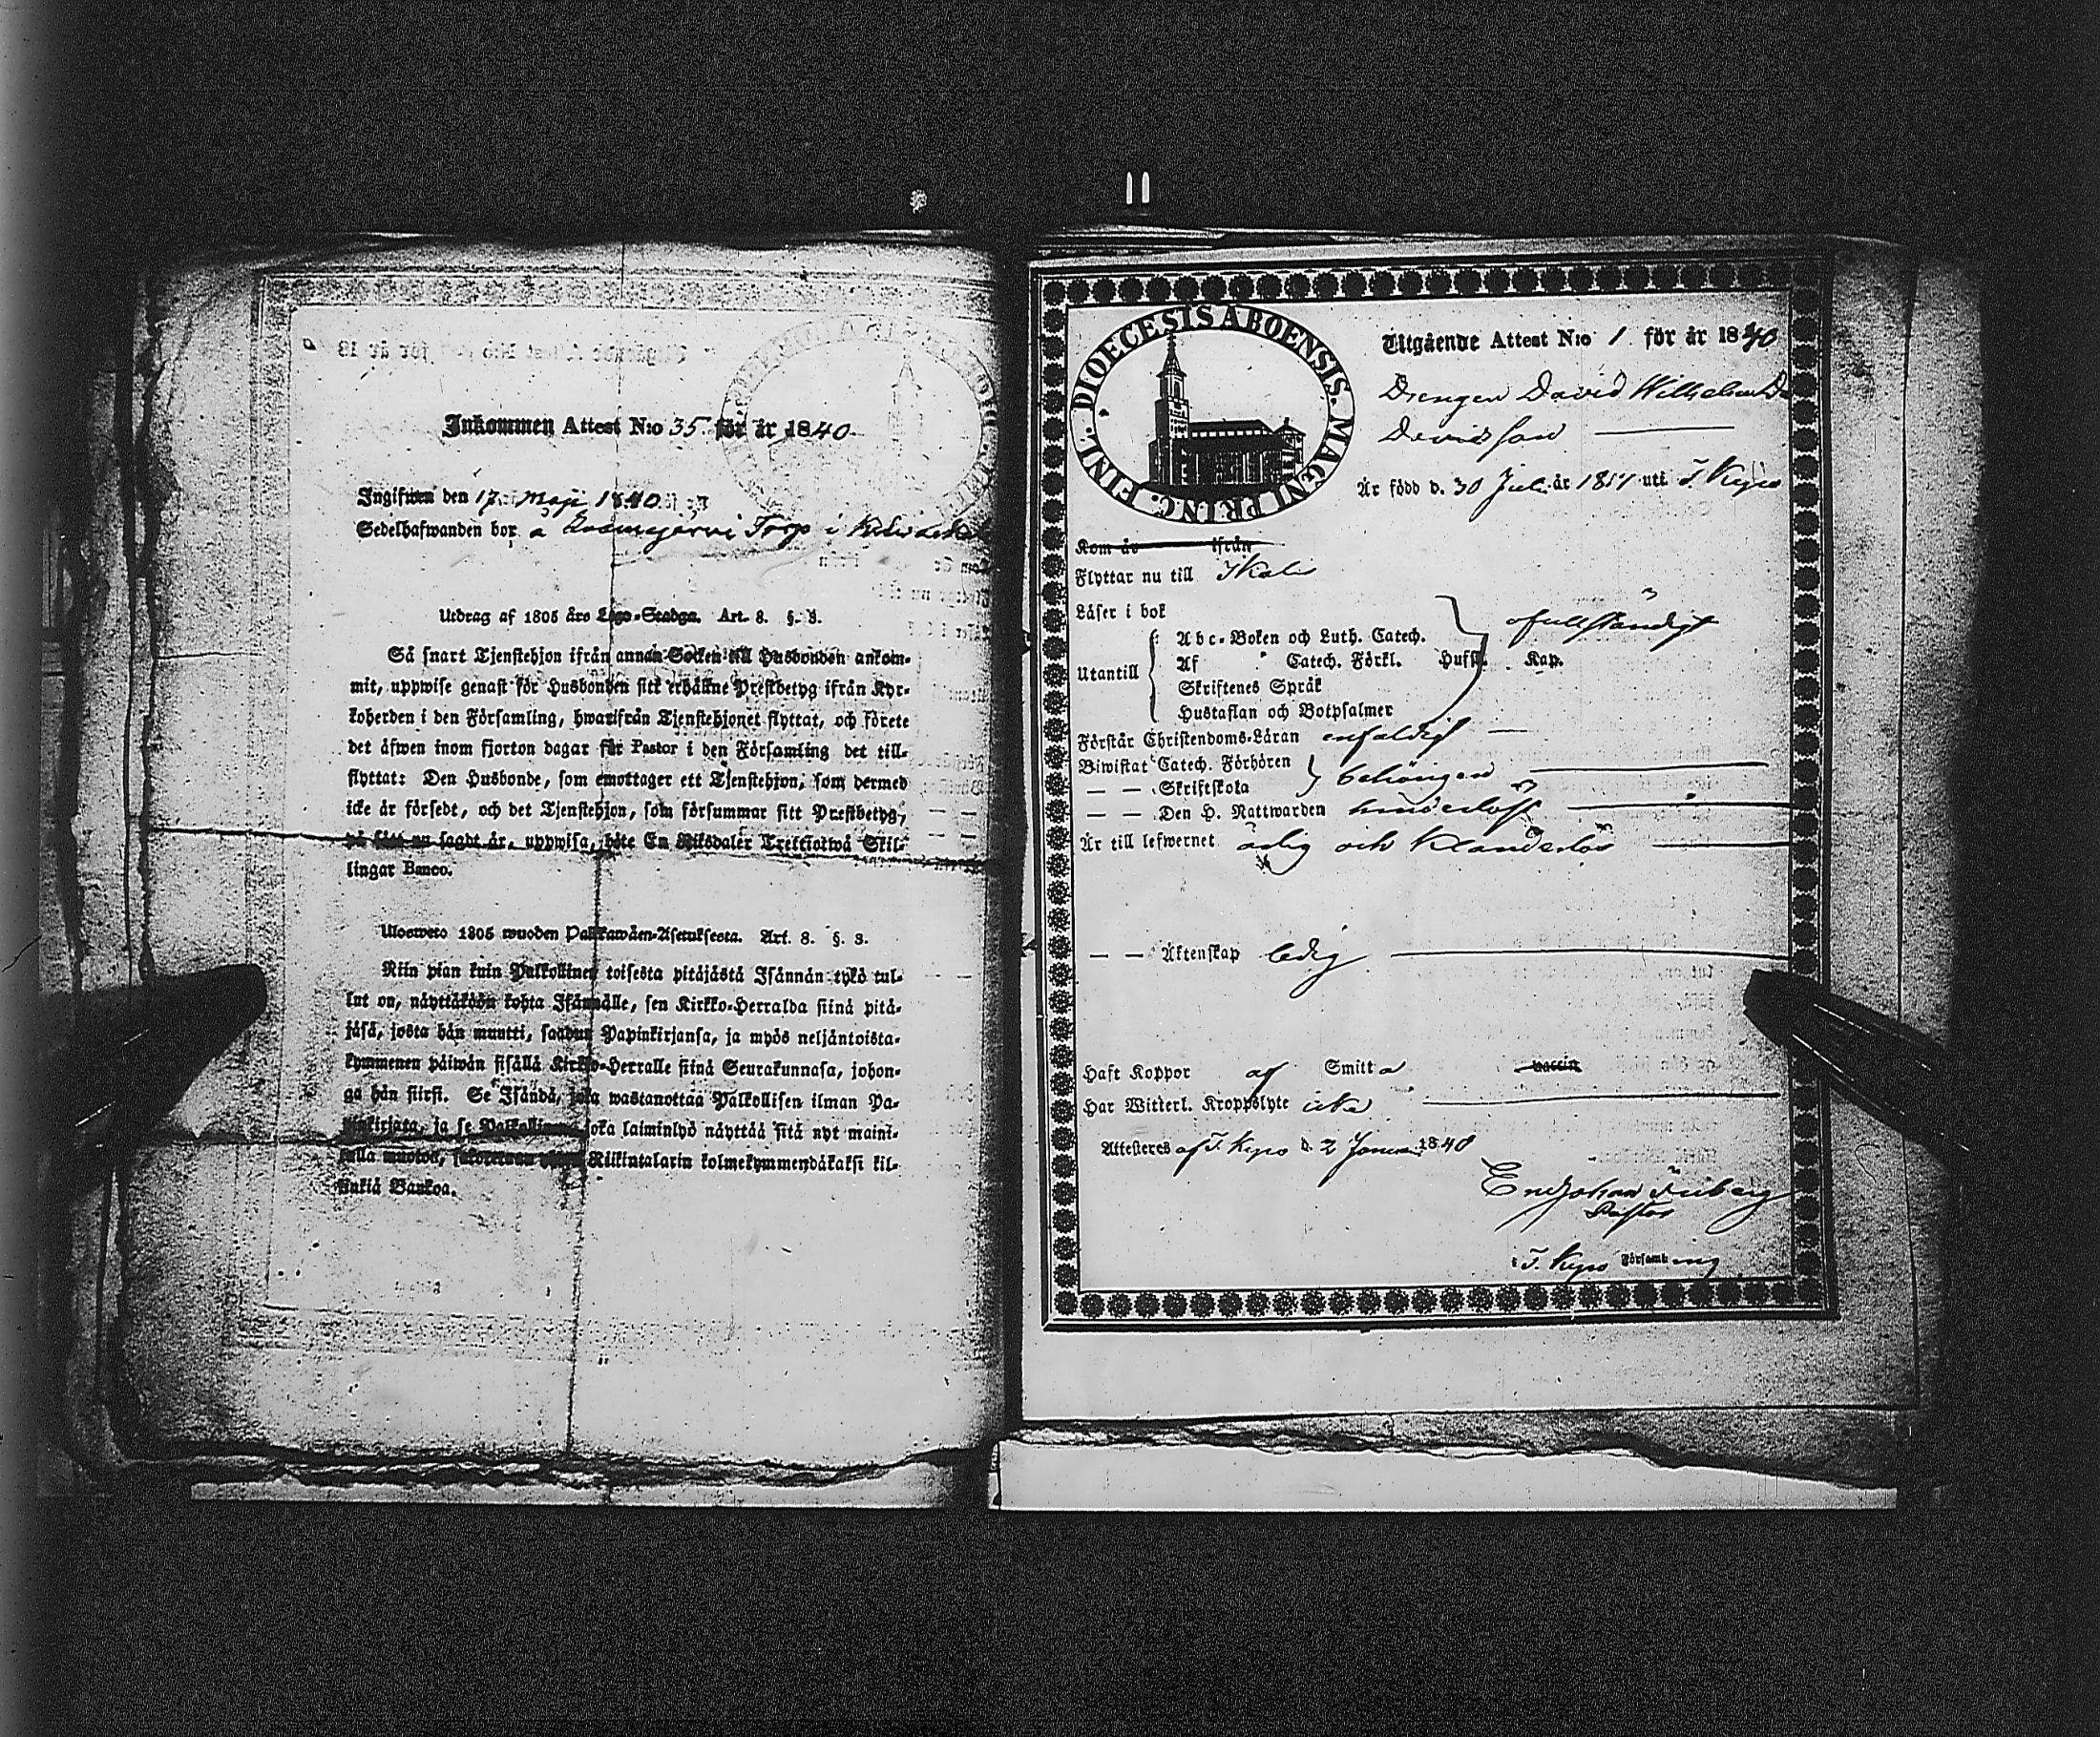 Inkommen Attest N:o 35. för år 1840.
Ingifwen den 17 Maji 1840.
Sedelhafwanden bor å Torp i
Utdrag af 1805 års Lego-Stadga. Art. 8. §. 3.
Så snart Tjenstehjon ifrån annan Socken till Husbonden ankom-
mit, uppwise genast för Husbonden sitt erhållne Prestbetyg ifrån Kyr-
koherden i den Församling, hwarifrån Tjenstehjonet flyttat, och förete
det äfwen inom fjorton dagar för Pastor i den Församling det till-
flyttat: Den Husbonde, som emottager ett Tjenstehjon, som dermed
icke är försedt, och det Tjenstehjon, som försummar sitt Prestbetyg,
på sätt nu sagdt är, uppwisa, böte En Riksdaler Trettiotwå Skil-
lingar Banco.
Ulosweto 1805 wuoden Palkkawäen-Asetuksesta. Art. 8. §. 3.
Niin pian kuin Palkollinen toisesta pitäjästä Isännän tykö tul-
lut on, näyttäköön kohta Isännälle, sen Kirkko-Herralda siinä pitä-
jäsä, josta hän muutti, saadun Papinkirjansa, ja myös neljäntoista-
kymmenen päiwän sisällä Kirkko-Herralle siinä Seurakunnasa, johon-
ga hän siirsi. Se Isändä, joka wastanottaa Palkollisen ilman Pa-
pinkirjata, ja se Palkollinen joka laiminlyö näyttää sitä nyt maini-
tulla muodon, Riikintalarin kolmekymmendäkaksi kil-
linkiä Bankoa.
DIOECESIS ABOENSIS. MAGNI PRINC. FINL.
Utgående Attest N:o 1 för år 1840
Drengen David Wilhelm
Davidsson
Är född d. 30 Juli år 1817 uti T. Kyro
Kom år ifrån
Flyttar nu till Ikalis
Läser i bok ofullständigt
Utantill
Abc-Boken och Luth. Catech.
Af Catech. Förkl. Husfl. Kap.
Skriftenes Språk
Hustaflan och Botpsalmer
Förstår Christendoms-Läran enfaldigt
Biwistat Catech. Förhören behörigen
— — Skriftskola
— — Den H. Nattwarden hinderlöst
Är till lefwernet ärlig och klanderlös
— — Äktenskap ledig
Haft Koppor af Smitta vaccin
Har Witterl. Kroppslyte icke
Attesteras af T. Kyro d. 2 Januari 1840
Johan Friberg
Pastor
i T. Kyro Församling